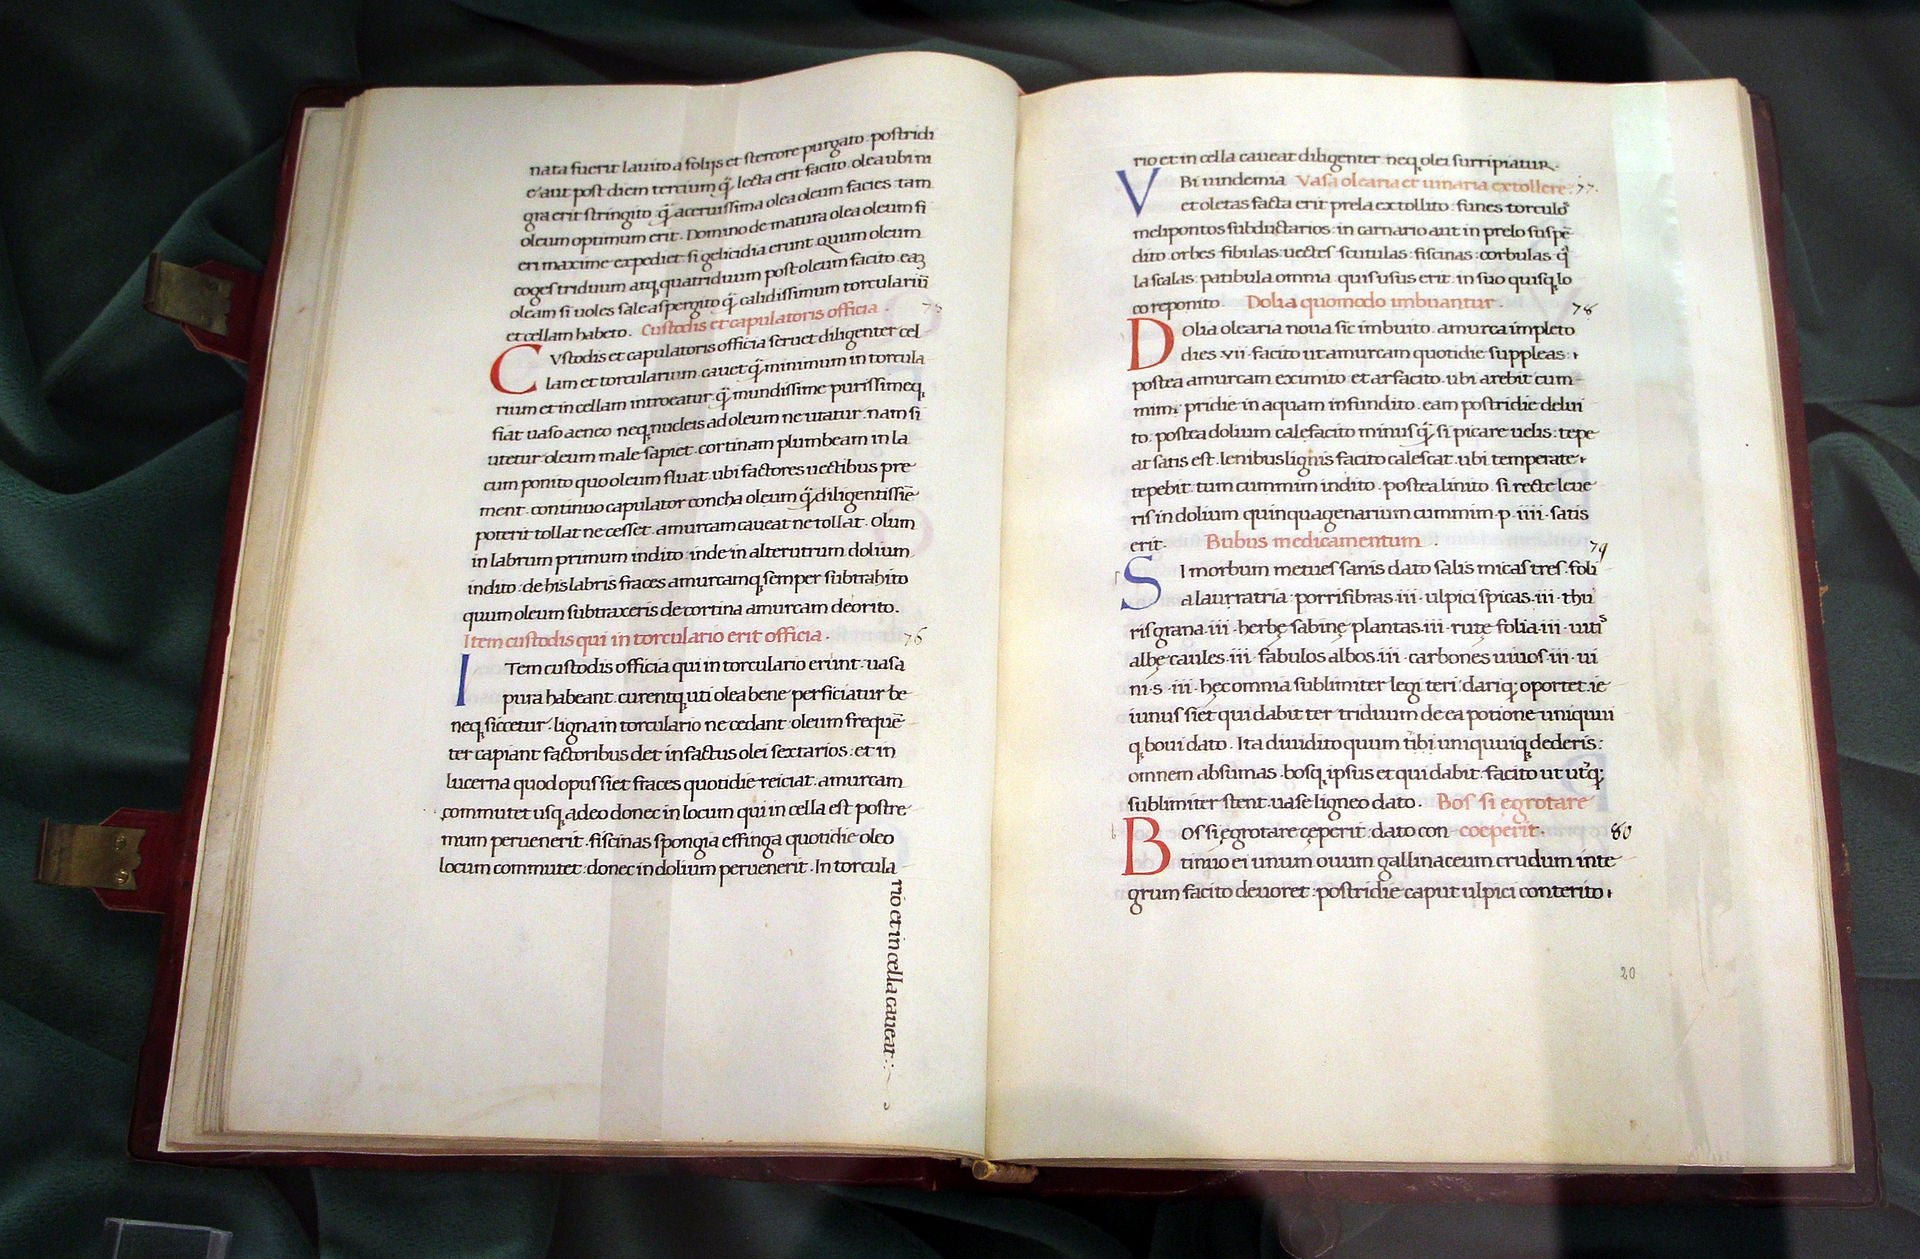 nata fuerit lauito a folijs et stercore purgato. postridi
e aut post diem tercium q̃ lecta erit facito. olea ubi ni
gra erit stringito. q̃ acerussima olea oleum facies tam
oleum optimum erit. Domino de matura olea oleum fi
eri maxime expediet. si gelicidia erunt quum oleum
coges triduum atq quatriduum post oleum facito. eaȝ
oleam si uoles sale aspergito q̃ calidissimum torculariũ
et cellam habeto. Custodis et capulatoris officia. 75
CVstodis et capulatoris officia seruet diligenter cel
lam et torcularium. cauet q̃ minimum in torcula
rium et in cellam introeatur q̃ mundissime purissimeq,
fiat uaso aeneo neq, nucleis ad oleum ne utatur. nam si
utetur oleum male sapiet. cortinam plumbeam in la
cum ponito quo oleum fluat. ubi factores uectibus pre
ment. continuo capulator concha oleum q̃ diligentissiẽ
poterit tollat ne cesset. amurcam caueat ne tollat. Olum
in labrum primum indito. inde in alterutrum dolium
indito: de his labris fraces amurcamq, semper subtrahito
quum oleum subtraxeris de cortina amurcam deorito.
Item custodis qui in torculario erit officia. 76
ITem custodis officia qui in torculario erunt. uasa
pura habeant. curentq, uti olea bene perficiatur be
neq, siccetur. ligna in torculario ne cedant. oleum frequẽ
ter capiant factoribus det in factus olei sextarios: et in
lucerna quod opus siet fraces quotidie reiciat. amurcam
commutet usq, adeo donec in locum qui in cella est postre
mum peruenerit. fiscinas spongia effinga quotidie oleo
locum commutet: donec in dolium peruenerit. In torcula
rio et in cella caueat:
rio et in cella caueat diligenter neq, olei surripiatur.
VBi uindemia Vasa olearia et uinaria extollere. 77.
et oletas facta erit prela extollito: funes torculos
melipontos subductarios: in carnario aut in prelo suspẽ
dito. orbes. fibulas. uectes. scutulas. fiscinas: corbulas. q̃
la scalas: patibula omnia. quis usus erit. in suo quisq, lo
co reponito. Dolia quomodo imbuantur. 78
DOlia olearia noua sic imbuito. amurca impleto
dies .vii. facito ut amurcam quotidie suppleas:
postea amurcam eximito et arfacito. ubi arebit cum
mim: pridie in aquam infundito. eam postridie delui
to. postea dolium calefacito minus q̃ si picare uelis: tepe
at satis est. lenibus lignis facito calescat. ubi temperate
tepebit. tum cummim indito. postea linito. si recte leue
ris in dolium quinquagenarium cummim. p. iiii. satis
erit. Bubus medicamentum. 79
SI morbum metues sanis dato salis micas tres. foli
a laur&atria: porri fibras .iii. ulpici spicas .iii. thu
ris grana .iii. herbę sabinę plantas .iii. rutę folia .iii. uitis
albę caules .iii. fabulos albos .iii. carbones uiuos .iii. ui
ni .s. iii. hęc omnia sublimiter legi teri dariq, oportet. ie
iunus siet qui dabit ter triduum de ea potione uniquui
q, boui dato. Ita diuidito quum tibi uniquuiq, dederis:
omnem absumas. bosq, ipsus et qui dabit. facito ut utq̃;
sublimiter stent. uase ligneo dato. Bos si egrotare
BOs si ęgrotare cęperit: dato con coeperit. 80
tinuo ei unum ouum gallinaceum crudum inte
grum facito deuoret: postridie caput ulpici conterito.
20